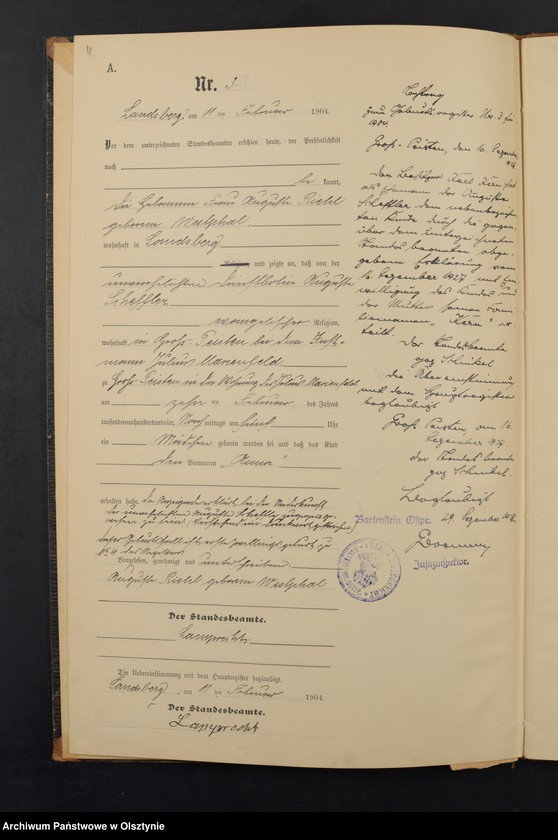 4
A.
Nr. 3.
Landsberg, am 11 ten Februar 1904.
Vor dem unterzeichneten Standesbeamten erschien heute, der Persönlichkeit
nach
be kannt,
die Hebamme Frau Auguste Riebl
geborene Westphal,
wohnhaft in Landsberg
und zeigte an, daß von der
unverehelichten Dienstbotin Auguste
Scheffler
evangelischer Religion,
wohnhaft in Groß-Peisten bei dem Inst-
mann Julius Marienfeld
zu Groß-Peisten in der Wohnung des Julius Marienfeld
am zehn ten Februar des Jahres
tausendneunhundertvier, Nachmittags um fünf Uhr
ein Mädchen geboren worden sei und daß das Kind
den Vornamen "Anna"
erhalten habe. Die Anzeigende erklärt bei der Niederkunft
der unverehelichten Auguste Scheffler zugegen ge-
wesen zu sein.
Vorgelesen, genehmigt und unterschrieben
Auguste Riebl geborene Westphal
Der Standesbeamte.
Lamprecht.
Die Uebereinstimmung mit dem Hauptregister beglaubigt.
Landsberg, am 11 ten Februar 1904.
Der Standesbeamte.
Lamprecht
zum Geburtsregister Nr. 3 für
1904.
Groß-Peisten, den 16. Dezember
1927
Der Karl Kern hat
als Ehemann der Auguste
Scheffler dem nebenbezeich-
neten Kinde durch die gegen-
über dem unterzeichneten
Standesbeamten abge-
gebene Erklärung vom
16. Dezember 1927 mit Ein-
willigung des Kindes und
der Mutter seinen Fami-
liennamen "Kern" er-
teilt.
Der Standesbeamte
gez. Schinkel
Die Übereinstimmung
mit dem Hauptregister
beglaubigt
Groß Peisten, am 16.
Dezember 1927.
Der Standesbeamte
gez. Schinkel.
Beglaubigt
Bartenstein Ostpr., 29. Dezember
Justizinspektor.
Archiwum Państwowe w Olsztynie